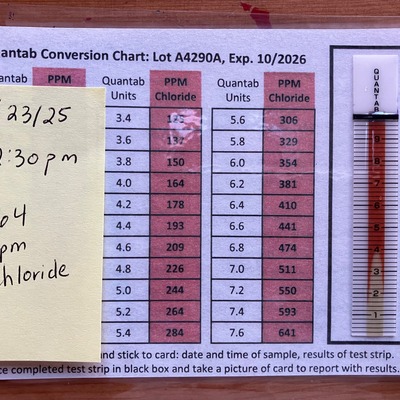 Quantab Conversion Chart: Lot A4290A, Exp. 10/2026
PPM
Quantab Units PPM Chloride
3.4
3.6 137
3.8 150
4.0 164
4.2 178
4.4 193
4.6 209
4.8 226
5.0 244
5.2 264
5.4 284
Quantab Units PPM Chloride
5.6 306
5.8 329
6.0 354
6.2 381
6.4 410
6.6 441
6.8 474
7.0 511
7.2 550
7.4 593
7.6 641
23/25
:30pm
64
pm
hloride
QUANTAB
9
8
7
6
5
4
3
2
1
and stick to card: date and time of sample, results of test strip.
ce completed test strip in black box and take a picture of card to report with results.